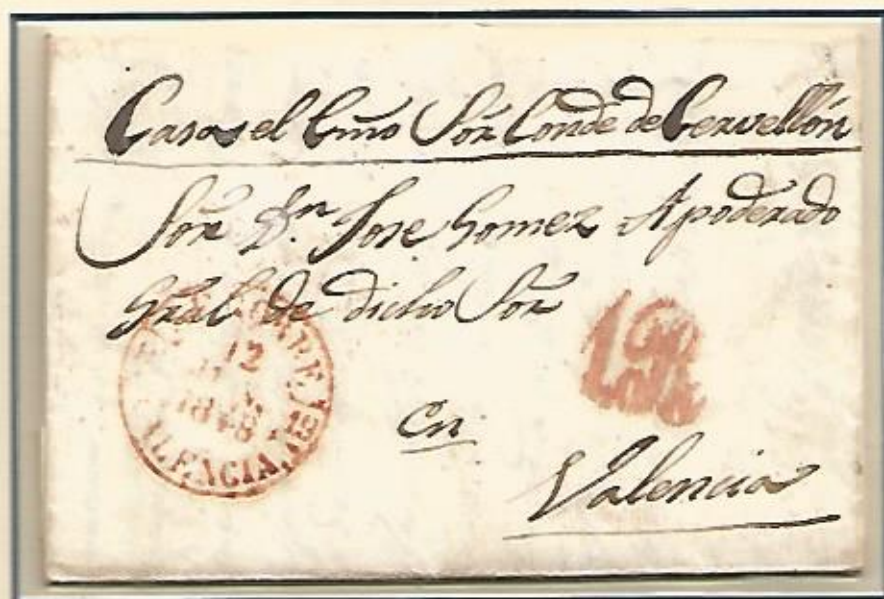 Casa el Exmo Sor Conde de Cervellón
Sor Dn. Jose Gomez Apoderado
Gral de dicho Sor
12
VALENCIA
En
Valencia